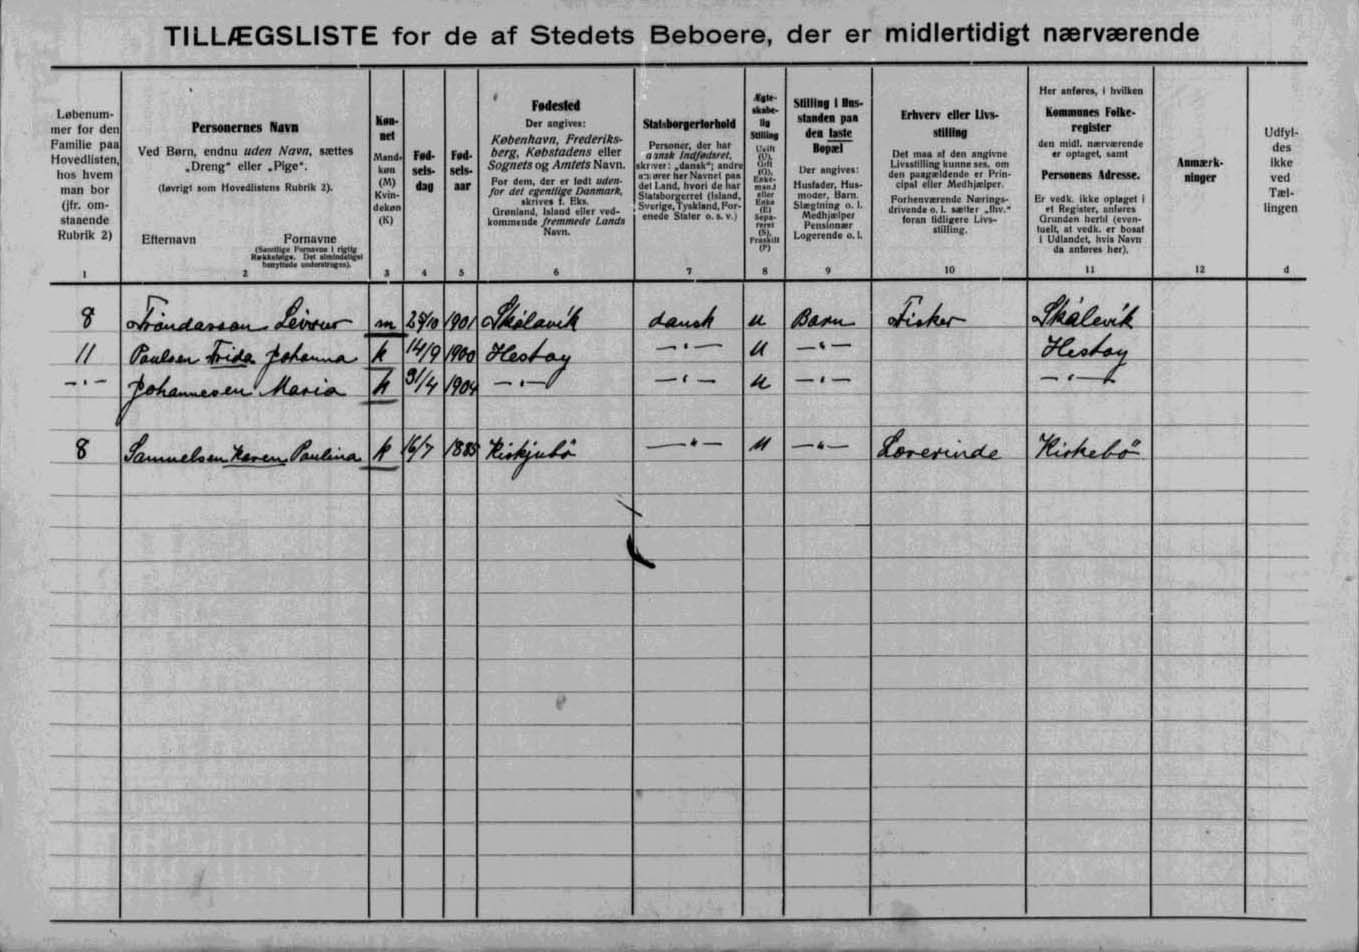 TILLÆGSLISTE for de af Stedets Beboere, der er midlertidigt nærværende
Løbenum-
mer for den
Familie paa
Hovedlisten,
hos hvem
man bor
(jfr. om-
staaende
Rubrik 2)
1
Personernes Navn
Ved Børn, endnu uden Navn, sættes
„Dreng“ eller „Pige“.
(Iøvrigt som Hovedlistens Rubrik 2).
Efternavn Fornavne
(Samtlige Fornavne i rigtig
Rækkefølge. Det almindeligst
benyttede understreges).
2
Køn-
net
Mand-
køn
(M)
Kvin-
dekøn
(K)
3
Fød-
sels-
dag
4
Fød-
sels-
aar
5
Fødested
Der angives:
København, Frederiks-
berg, Købstadens eller
Sognets og Amtets Navn.
For dem, der er født uden-
for det egentlige Danmark,
skrives f. Eks.
Grønland, Island eller ved-
kommende fremmede Lands
Navn.
6
Statsborgerforhold
Personer, der har
dansk Indfødsret,
skriver: „dansk“; andre
anfører her Navnet paa
det Land, hvori de har
Statsborgerret (Island,
Sverige, Tyskland, For-
enede Stater o. s. v.)
7
Ægte-
skabe-
lig
Stilling
Ugift
(U),
Gift
(G),
Enke-
mand
eller
Enke
(E)
Sepa-
reret
(S),
Fraskilt
(F)
8
Stilling i Hus-
standen paa
den faste
Bopæl
Der angives:
Husfader, Hus-
moder, Barn.
Slægtning o. l.
Medhjælper
Pensionær
Logerende o. l.
9
Erhverv eller Livs-
stilling
Det maa af den angivne
Livsstilling kunne ses, om
den paagældende er Prin-
cipal eller Medhjælper.
Forhenværende Nærings-
drivende o. l. sætter „fhv.“
foran tidligere Livs-
stilling.
10
Her anføres, i hvilken
Kommunes Folke-
register
den midl. nærværende
er optaget, samt
Personens Adresse.
Er vedk. ikke optaget i
et Register, anføres
Grunden hertil (even-
tuelt, at vedk. er bosat
i Udlandet, hvis Navn
da anføres her).
11
Anmærk-
ninger
12
Udfyl-
des
ikke
ved
Tæl-
lingen
d
8 Tróndarson m 1901 Skálavik dansk u Barn Fisker Skálevik
11 Paulsen Frida Johanna k 14/9 1900 Hestoy — " — u — " — Hestoy
— " — Johannesen Maria k 1904 — " — — " — u — " — — " —
8 Samuelsen Karen Paulina k 16/7 1885 Kirkjubö — " — u — " — Lærerinde Kirkebö